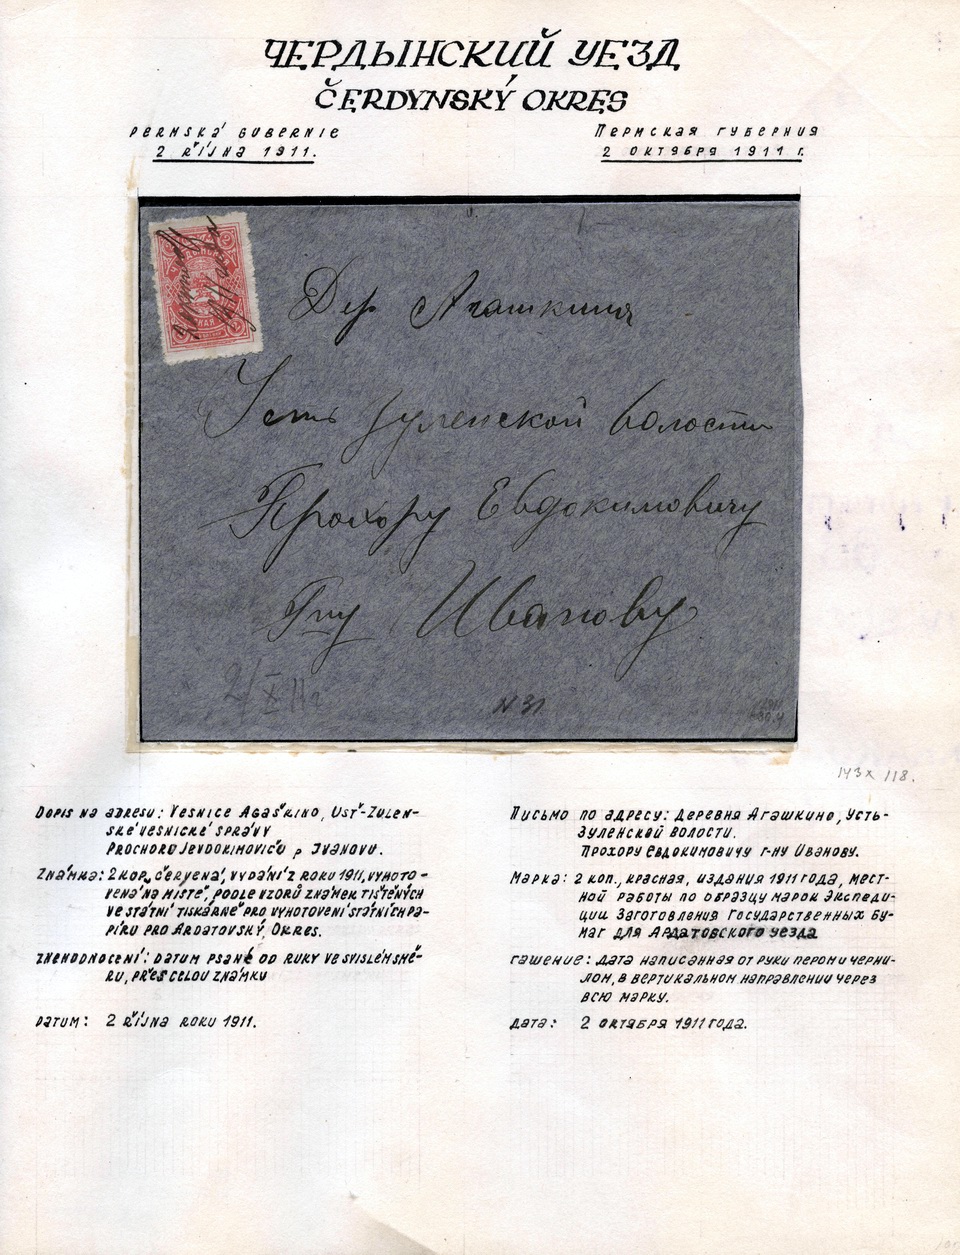 ЧЕРДЫНСКИЙ УЕЗД
ČERDYNSKÝ OKRES
PERMSKÁ GUBERNIE
2 ŘÍJNA 1911.
ПЕРМСКАЯ ГУБЕРНИЯ
2 ОКТЯБРЯ 1911 г.
Дер Агашкина
Усть Зуленской волости
Прохору Евдокимовичу
Гну Иванову
2/X 11г
N 31
143 x 118.
DOPIS NA ADRESU: VESNICE AGAŠKINO, UST'-ZULEN-
SKÉ VESNICKÉ SPRÁVY
PROCHORU JEVDOKIMOVIČU P IVANOVU.
ZNÁMKA: 2 KOP, ČERVENÁ, VYDÁNÍ Z ROKU 1911, VYHOTO-
VENÁ NA MÍSTĚ, PODLE VZORŮ ZNÁMEK TIŠTĚNÝCH
VE STÁTNÍ TISKÁRNĚ PRO VYHOTOVENÍ STÁTNÍCH PA-
PÍRU PRO ARDATOVSKÝ OKRES.
ZNEHODNOCENÍ: DATUM PSANÉ OD RUKY VE SVISLÉM SMĚ-
RU, PŘES CELOU ZNÁMKU
DATUM: 2 ŘÍJNA ROKU 1911.
ПИСЬМО ПО АДРЕСУ: ДЕРЕВНЯ АГАШКИНО, УСТЬ-
ЗУЛЕНСКОЙ ВОЛОСТИ.
ПРОХОРУ ЕВДОКИМОВИЧУ Г-НУ ИВАНОВУ.
МАРКА: 2 КОП., КРАСНАЯ, ИЗДАНИЯ 1911 ГОДА, МЕСТ-
НОЙ РАБОТЫ ПО ОБРАЗЦУ МАРОК ЭКСПЕДИ-
ЦИИ ЗАГОТОВЛЕНИЯ ГОСУДАРСТВЕННЫХ БУ-
МАГ ДЛЯ АРДАТОВСКОГО УЕЗДА
ГАШЕНИЕ: ДАТА НАПИСАННАЯ ОТ РУКИ ПЕРОМ И ЧЕРНИ-
ЛОМ, В ВЕРТИКАЛЬНОМ НАПРАВЛЕНИИ ЧЕРЕЗ
ВСЮ МАРКУ.
ДАТА: 2 ОКТЯБРЯ 1911 ГОДА.